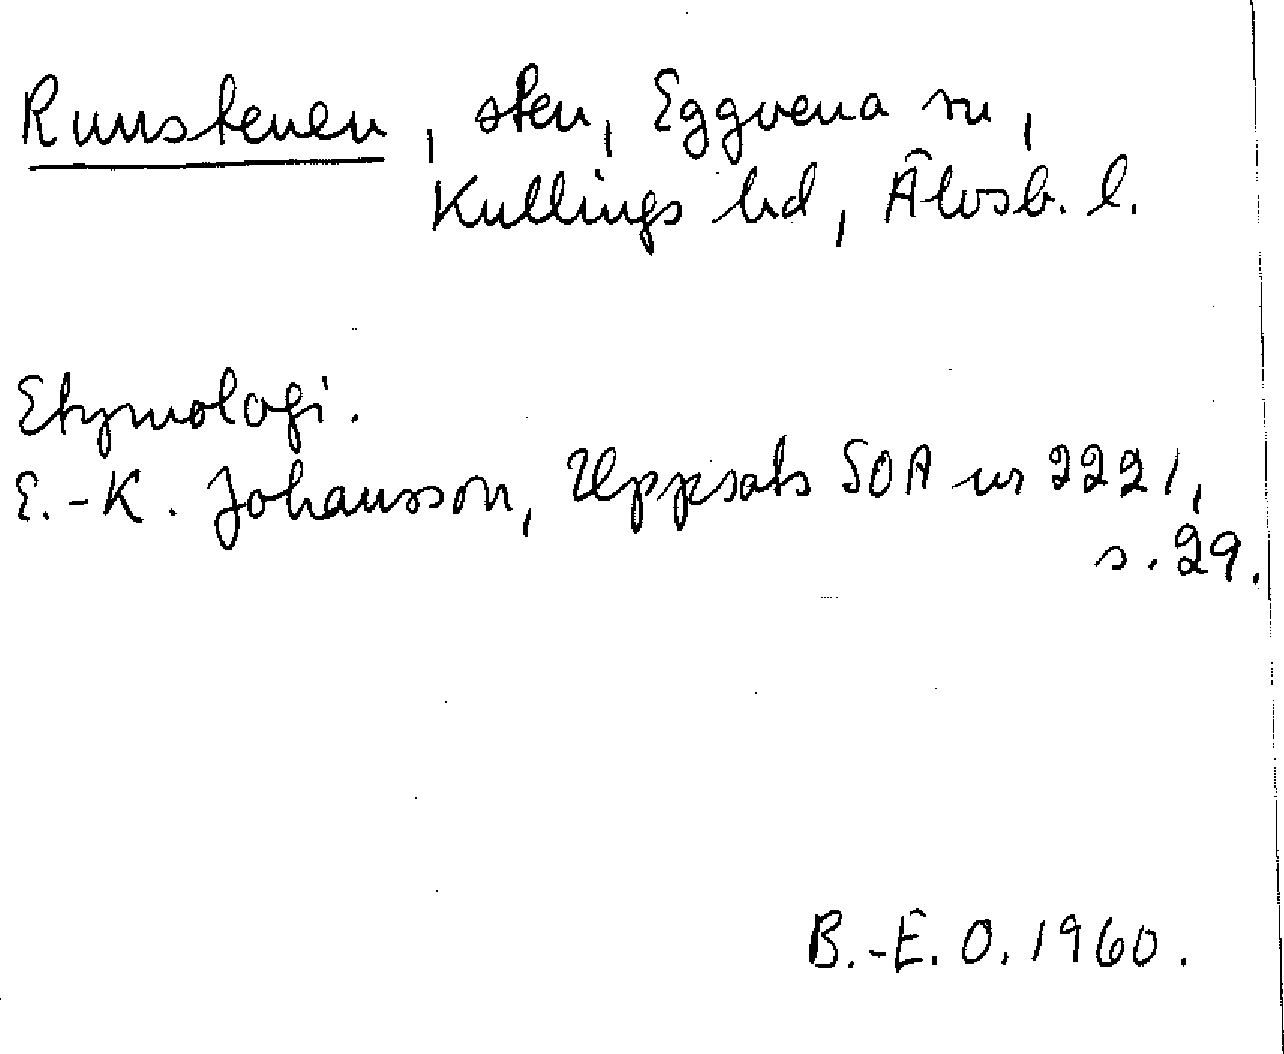 Runstenen, sten, Eggvena sn,
Kullings hd, Älvsb. l.
Etymologi.
E.-K. Johansson, Uppsats SOA nr 2221,
s. 29.
B.-E. O. 1960.